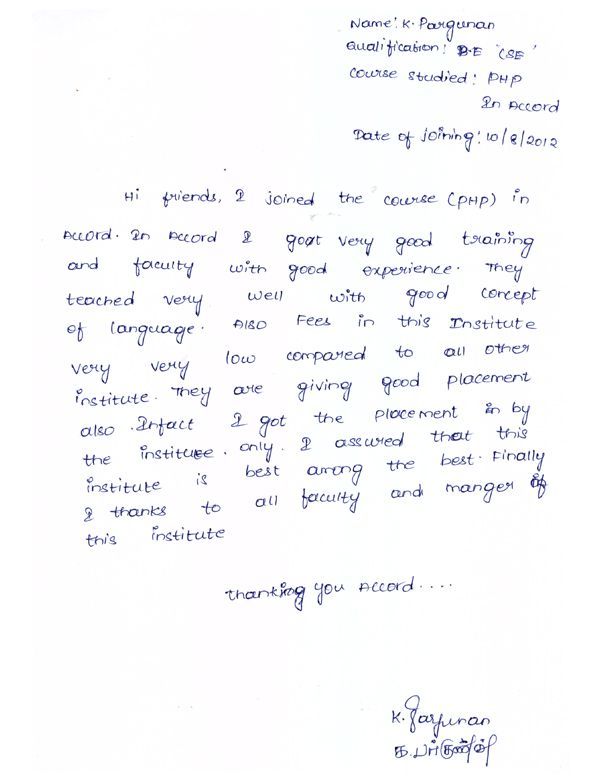 Name: K. Pargunan
Qualification: B.E 'CSE'
Course Studied: PHP
In Accord
Date of joining: 10/8/2012
Hi friends, I joined the course (PHP) in
Accord. In Accord I goot very good training
and faculty with good experience. They
teached very well with good concept
of language. Also Fees in this Institute
very very low compared to all other
institute. They are giving good placement
also. Infact I got the placement in by
the institute. only. I assured that this
institute is best among the best. Finally
I thanks to all faculty and manger of
this institute
Thanking you Accord....
K. Pargunan
க. பர்குணன்